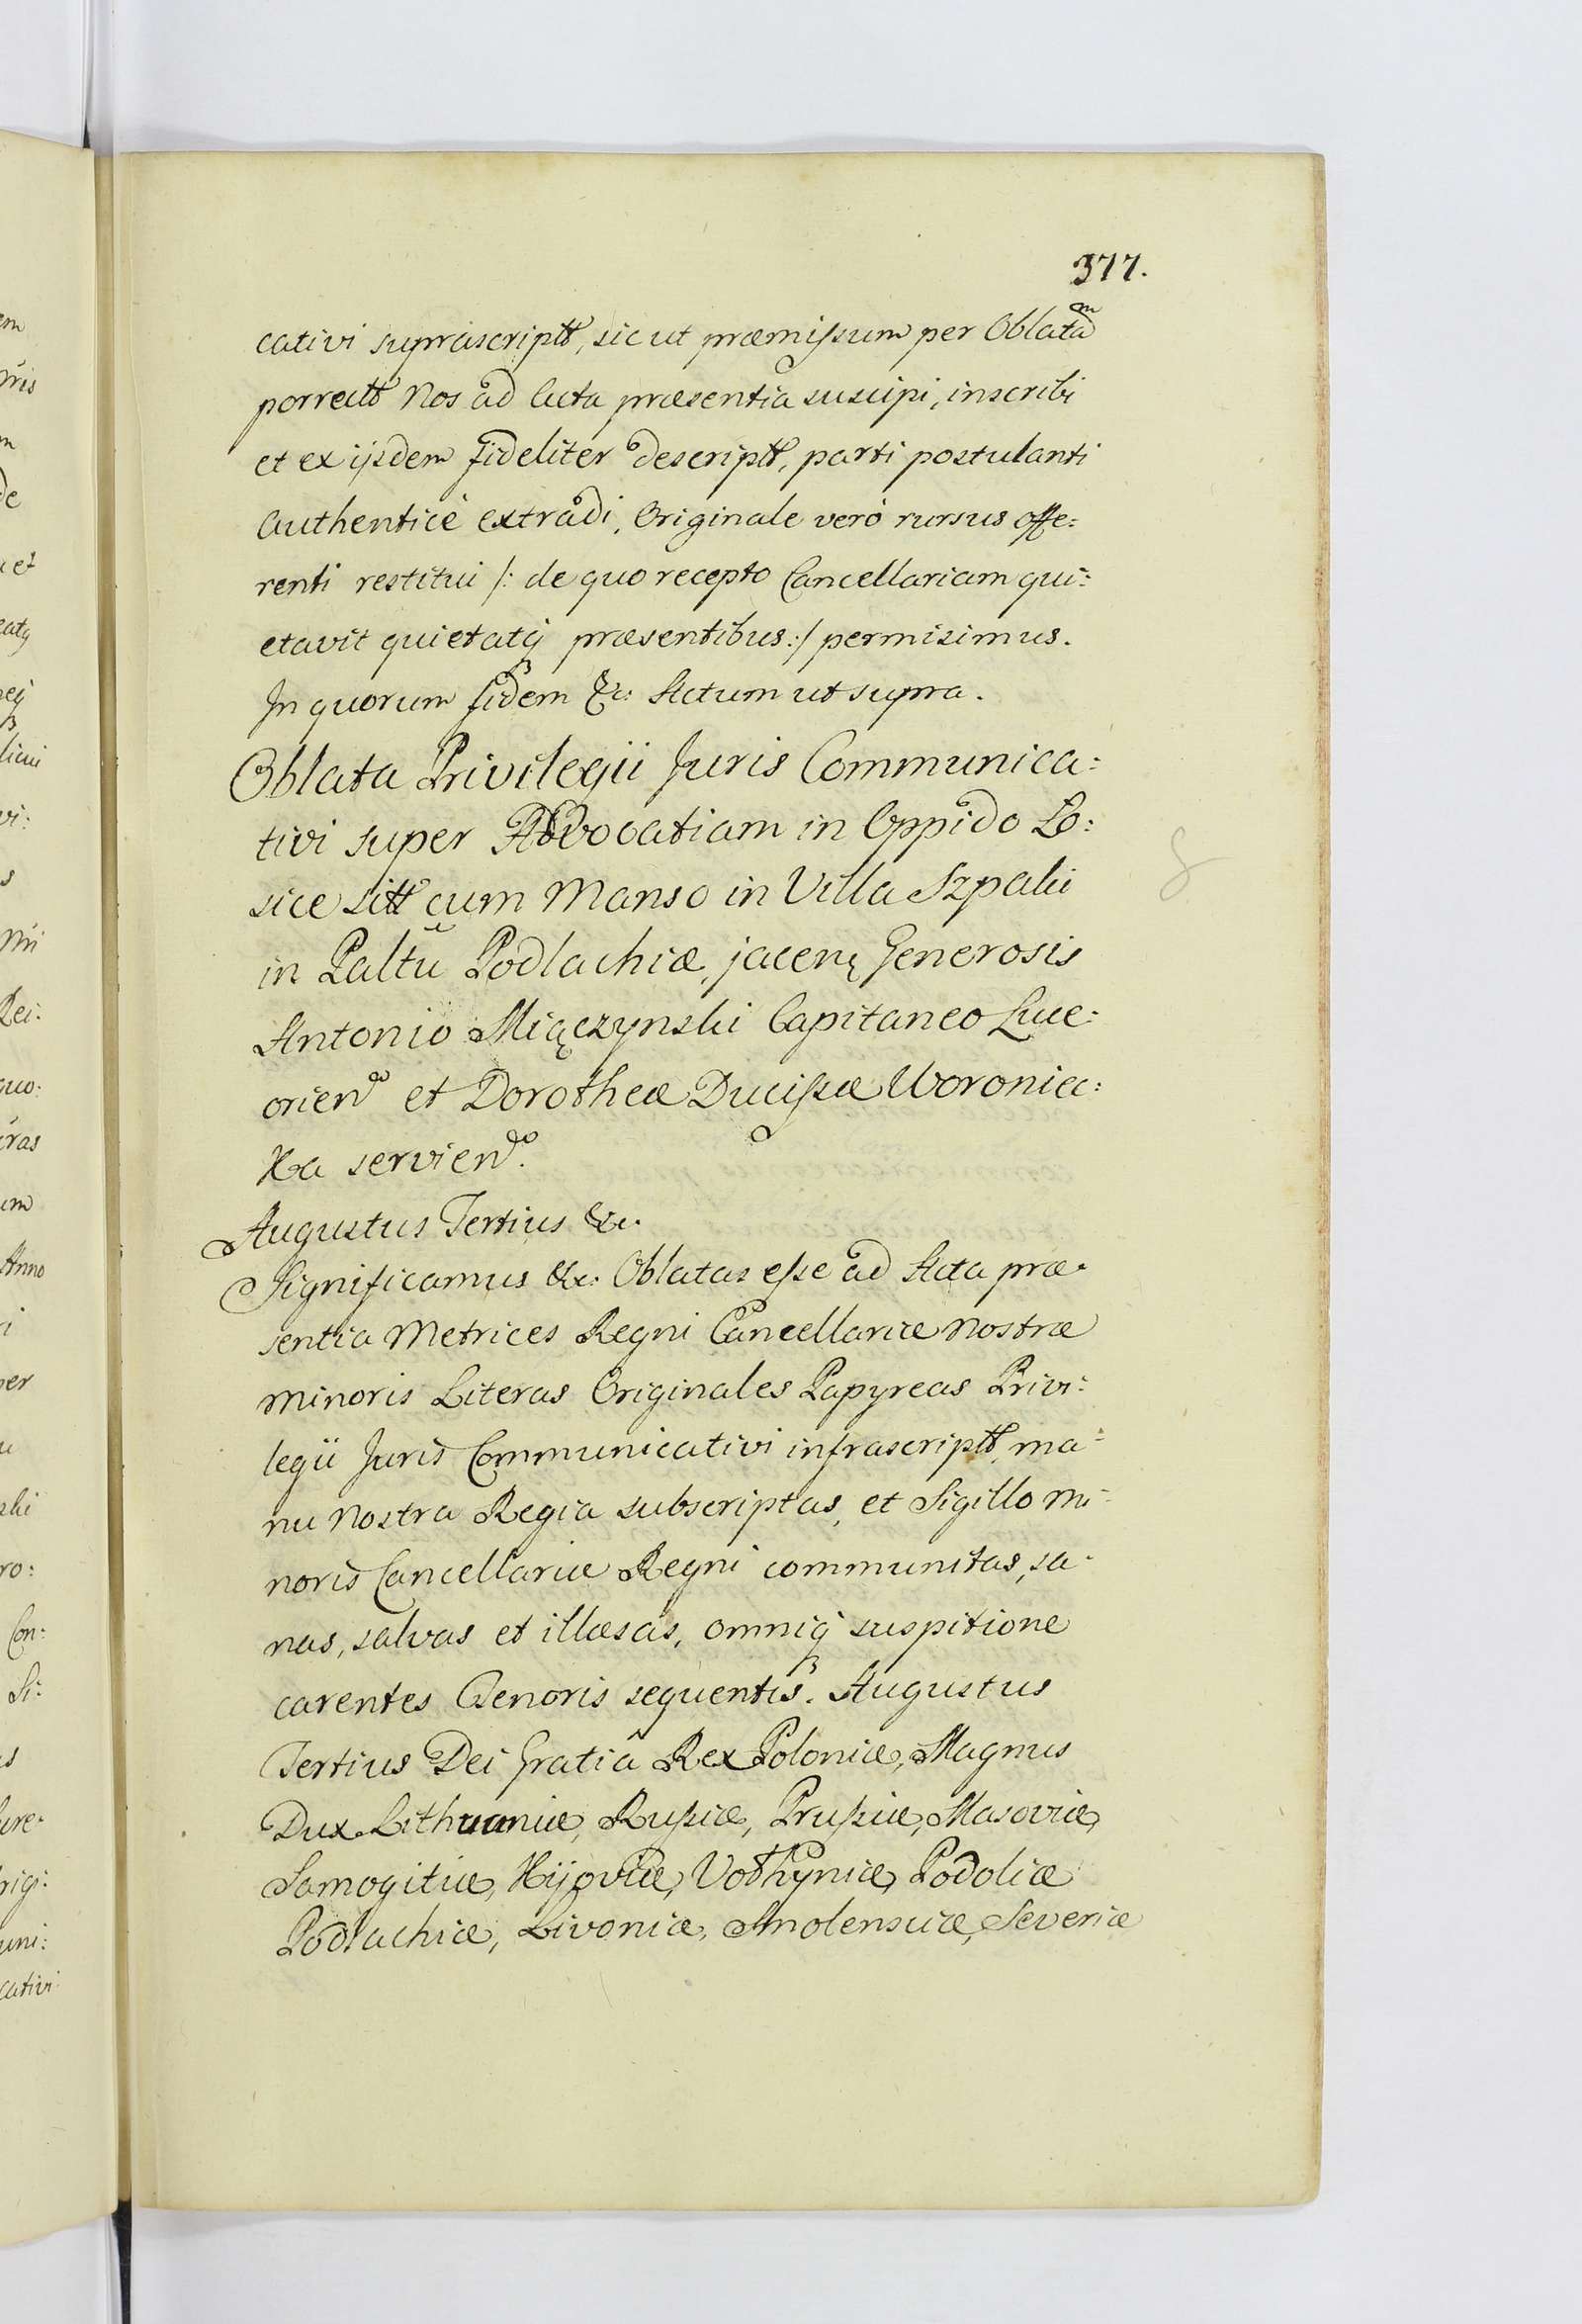 377.
cativi suprascriptt, sic ut præmissum per Oblatam
porrectt Nos ad Acta præsentia suscipi, inscribi
et ex ijsdem fideliter descriptt, parti postulanti
Authenticè extradi, Originale verò rursus offe:
renti restitui /: de quo recepto Cancellariam qui:
etavit quietatq præsentibus :/ permisimus.
In quorum fidem &c: Actum ut supra.
Oblata Privilegii Juris Communica:
tivi super Advocatiam in Oppido Lo:
sice sitt cum Manso in Villa Szpaki
in Paltũ Podlachiæ, jacenę Generosis
Antonio Miączynski Capitaneo Luce:
orien et Dorotheæ Ducissæ Woroniec:
Ka servien.
Augustus Tertius &c.
Significamus &c: Oblatas esse ad Acta præ:
sentia Metrices Regni Cancellariæ Nostræ
Minoris Literas Originales Papyreas Privi:
legii Juris Communicativi infrascriptt, ma:
nu Nostra Regia subscriptas, et Sigillo Mi:
noris Cancellariæ Regni communitas, sa:
nas, salvas et illæsas, omniq suspitione
carentes Tenoris sequentis. Augustus
Tertius Dei Gratiâ Rex Poloniæ, Magnus
Dux Lithuaniæ, Russiæ, Prussiæ, Masoviæ,
Samogitiæ, Kijoviæ, Volhyniæ, Podoliæ
Podlachiæ, Livoniæ, Smolensciæ, Severiæ